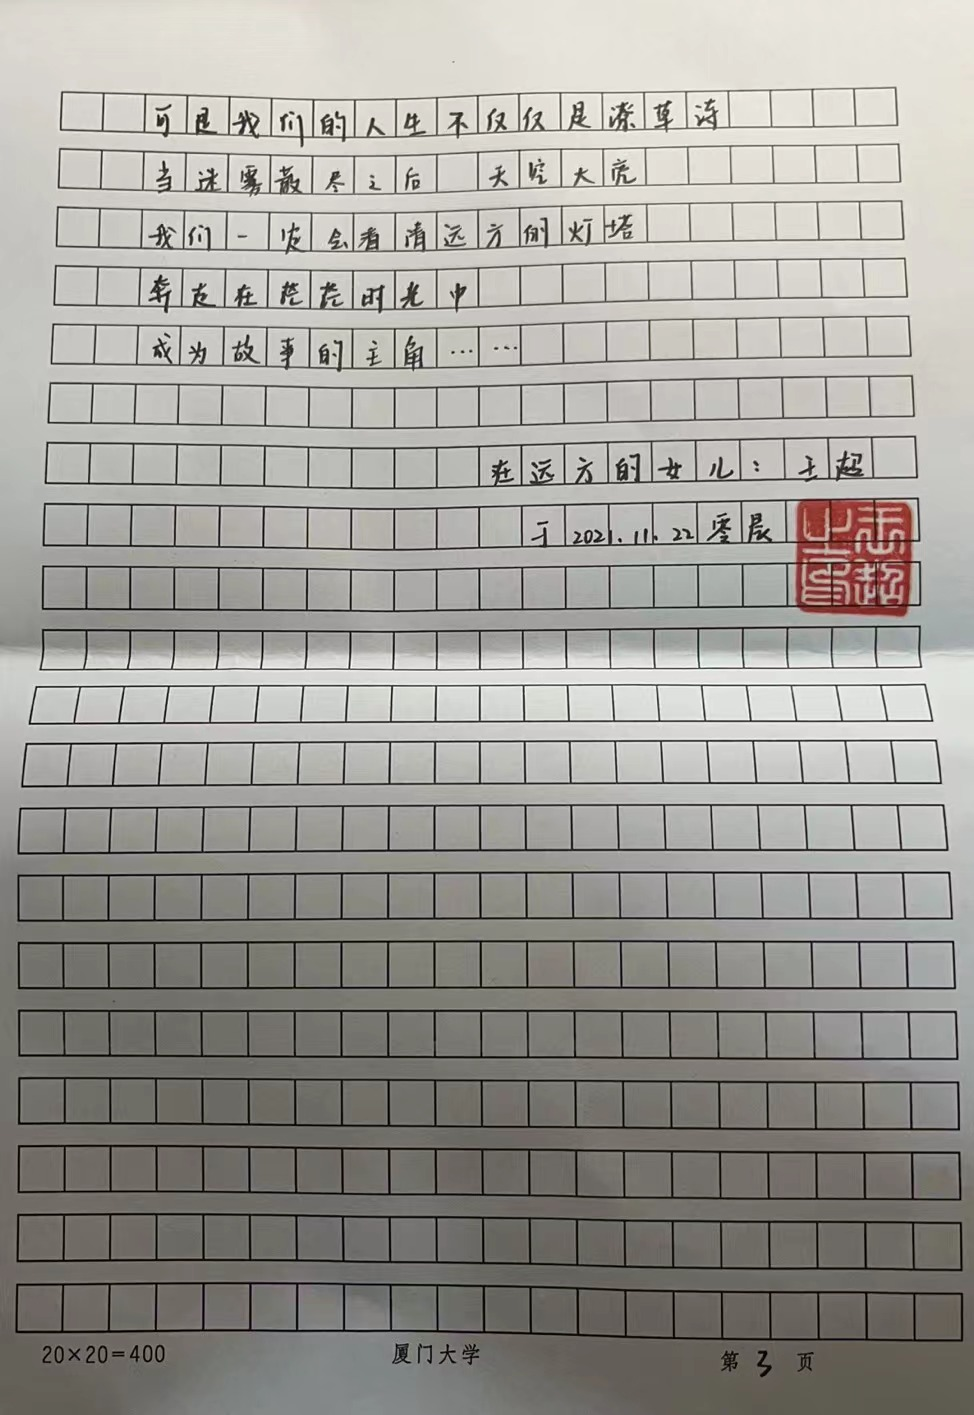 可是我们的人生不仅仅是潦草诗
当迷雾散尽之后 天空大亮
我们一定会看清远方的灯塔
奔走在茫茫时光中
成为故事的主角……
在远方的女儿：王超
于2021.11.22零晨
王超之印
20×20=400 厦门大学 第3页